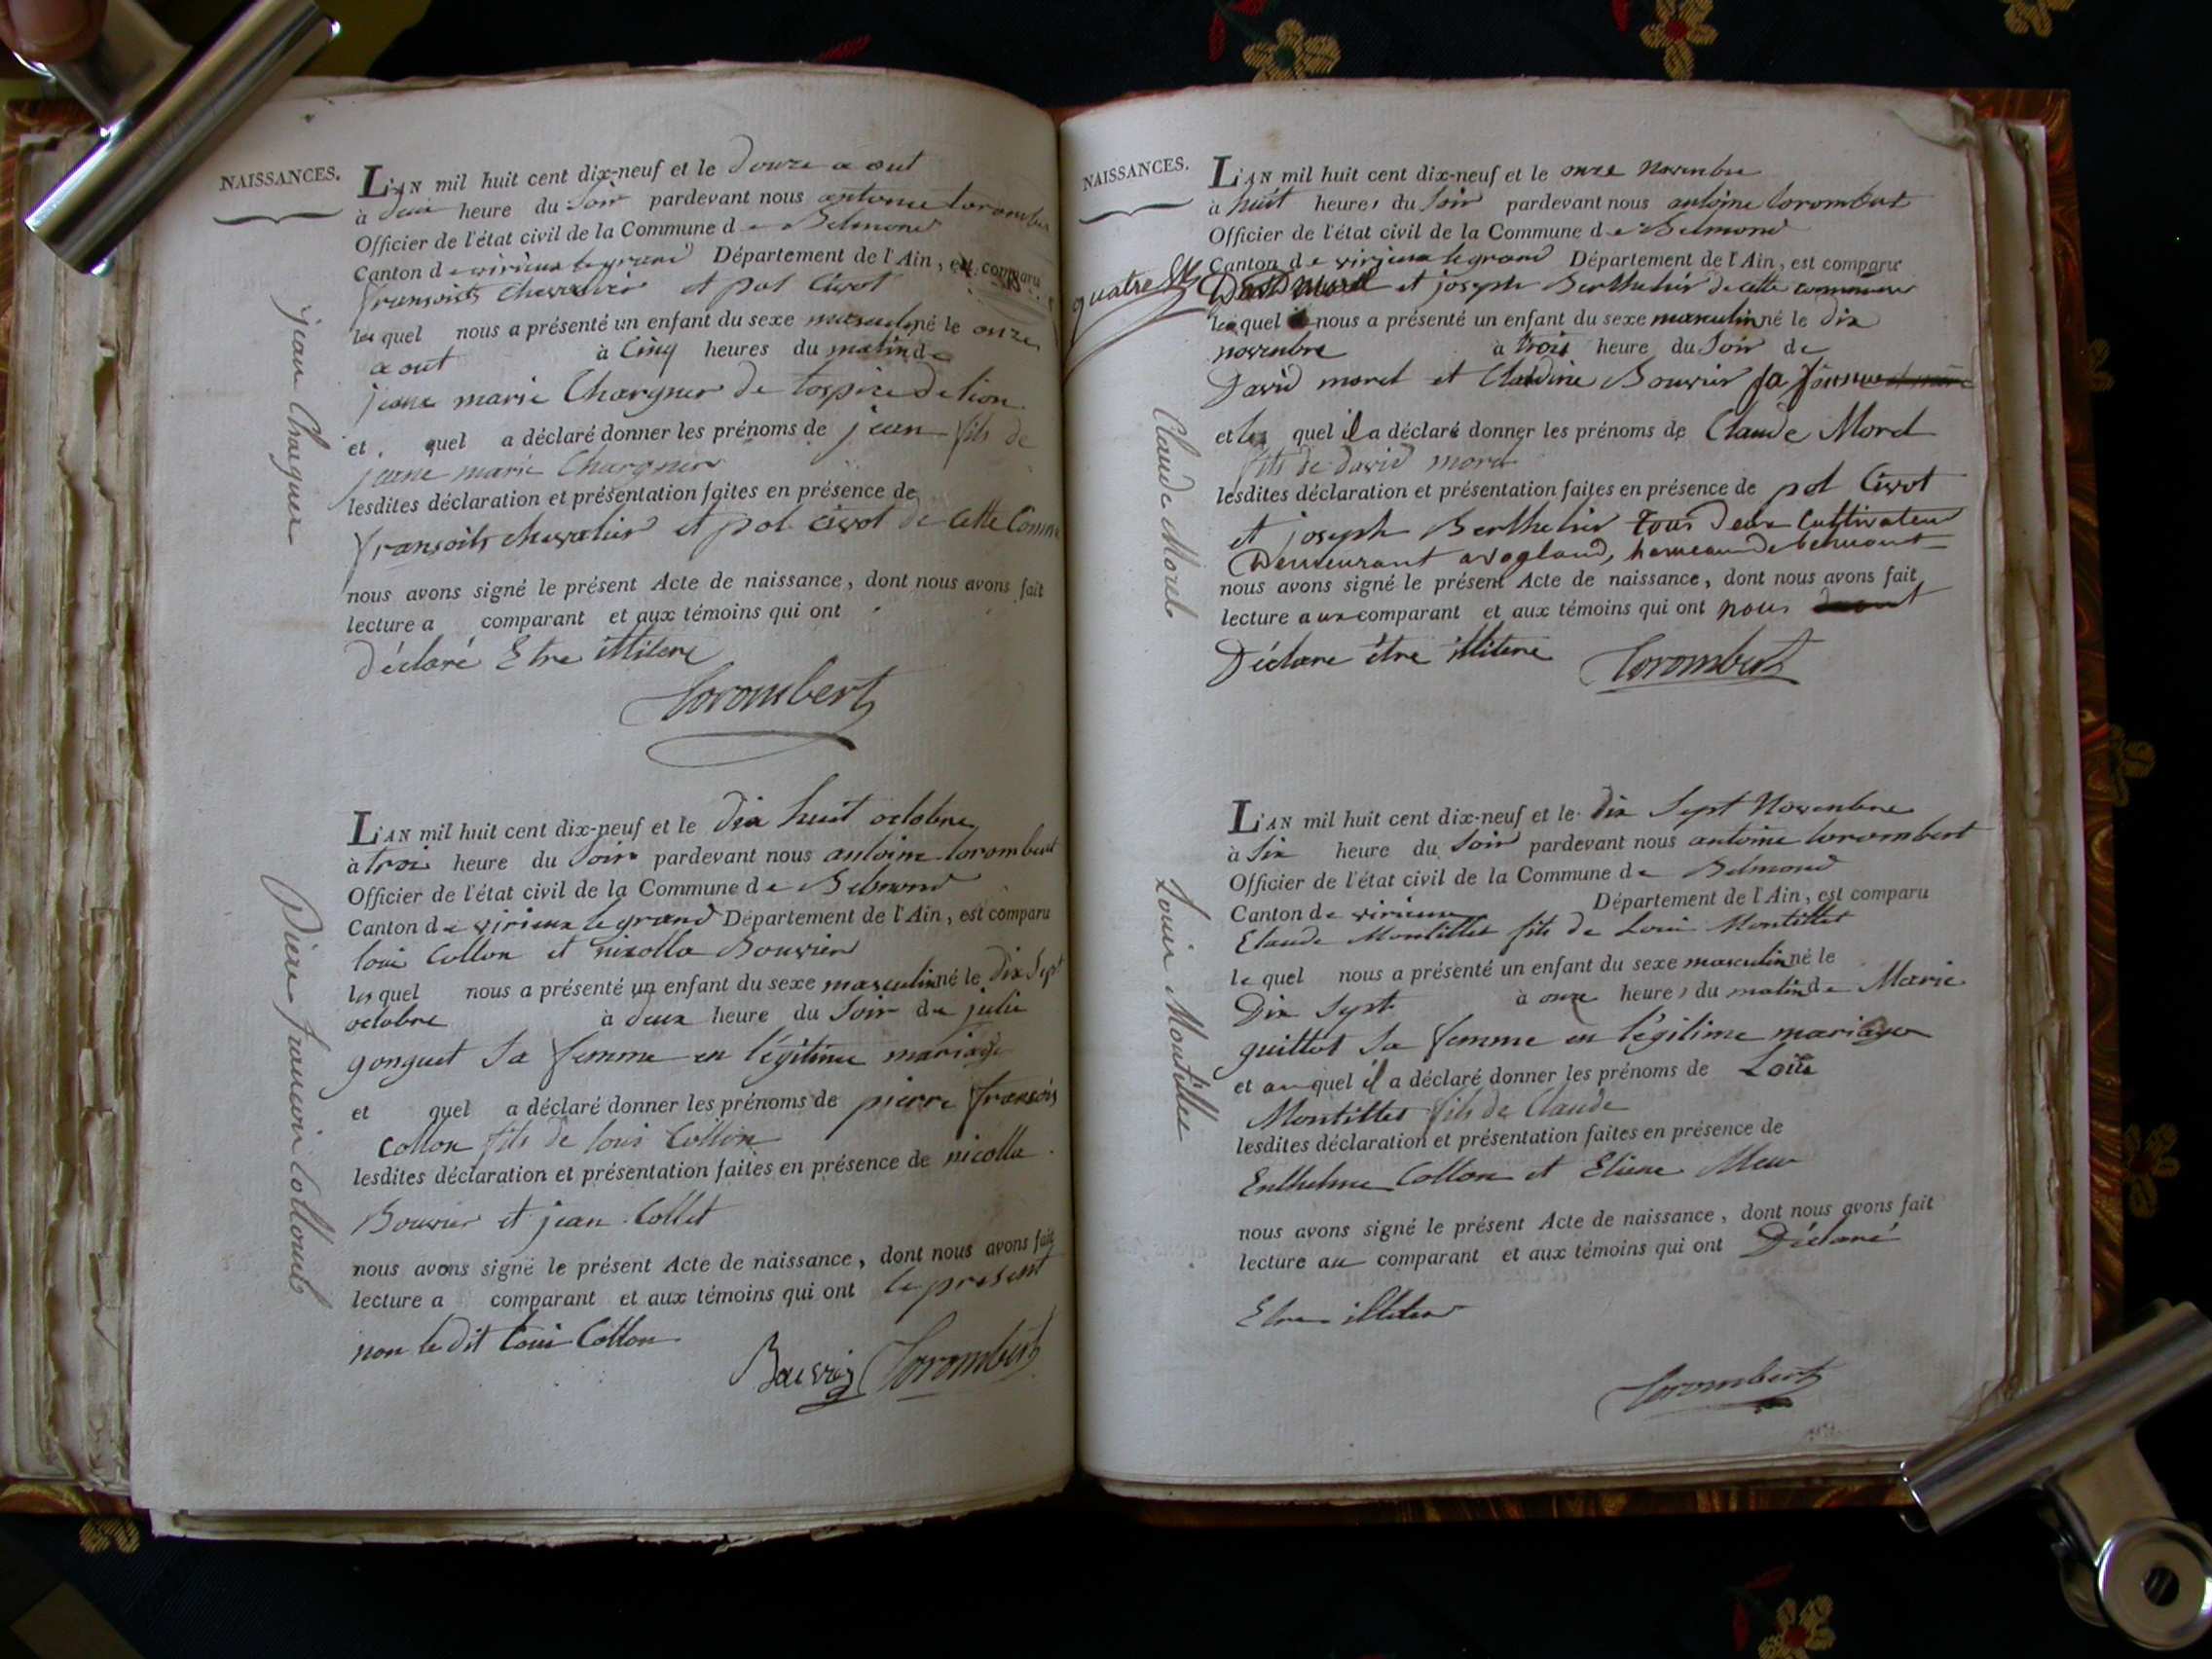 NAISSANCES.
L'AN mil huit cent dix-neuf et le douze aout
à deux heure du Soir pardevant nous antoine lorombert
Officier de l'état civil de la Commune de Belmond
Canton de virieux legrand Département de l'Ain, est comparu
fransoits chevalier et pol Civot
les quel nous a présenté un enfant du sexe masculin né le onze
aout à Cinq heures du matin de
jeane marie Chargner de lospice de lion
et quel a déclaré donner les prénoms de jean fils de
jeane marie Chargner
lesdites déclaration et présentation faites en présence de
fransoits chevalier et pol civot de cette Comm
nous avons signé le présent Acte de naissance, dont nous avons fait
lecture a comparant et aux témoins qui ont
déclaré Etre illitere
Lorombert
jean Chargner
L'AN mil huit cent dix-neuf et le dix huit octobre
à troi heure du Soir pardevant nous antoine lorombert
Officier de l'état civil de la Commune de Belmond
Canton de virieux le grand Département de l'Ain, est comparu
loui Collon et nicolla Bouvier
les quel nous a présenté un enfant du sexe masculin né le dix Sept
octobre à deux heure du Soir de julie
gonguet Sa femme en légitime mariage
et quel a déclaré donner les prénoms de pierre fransois
Collon fils de louis Collon
lesdites déclaration et présentation faites en présence de nicolla
Bouvier et jean Collet
nous avons signé le présent Acte de naissance, dont nous avons fait
lecture a comparant et aux témoins qui ont le present
non le dit loui Collon
Bouvier Lorombert
Pierre francois Colloud
NAISSANCES.
L'AN mil huit cent dix-neuf et le onze novembre
à huit heures du Soir pardevant nous antoine lorombert
Officier de l'état civil de la Commune de Belmond
Canton de virieux legrand Département de l'Ain, est comparu
David morel et joseph Berthelier de cette commune
lesquel nous a présenté un enfant du sexe masculin né le dix
novembre à trois heure du Soir de
David morel et Claudine Bouvier sa femme
et les quel il a déclaré donner les prénoms de Claude Morel
fils de david morel
lesdites déclaration et présentation faites en présence de pol Civot
et joseph Berthelier tous deux Cultivateur
Demeurant a vogland, hameau de belmont
nous avons signé le présent Acte de naissance, dont nous avons fait
lecture aux comparant et aux témoins qui ont nous
Déclare être illitere Lorombert
Claude Morel
L'AN mil huit cent dix-neuf et le dix Sept Novembre
à Six heure du Soir pardevant nous antoine lorombert
Officier de l'état civil de la Commune de Belmond
Canton de virieux Département de l'Ain, est comparu
Claude Montillet fils de Loui Montillet
le quel nous a présenté un enfant du sexe masculin né le
Dix Sept à onze heures du matin de Marie
guillot Sa femme en légitime mariage
et auquel il a déclaré donner les prénoms de Loui
Montillet fils de Claude
lesdites déclaration et présentation faites en présence de
Enthelme Collon et Etiene
nous avons signé le présent Acte de naissance, dont nous avons fait
lecture au comparant et aux témoins qui ont Déclaré
Etre illitere
Lorombert
Louis Montillet